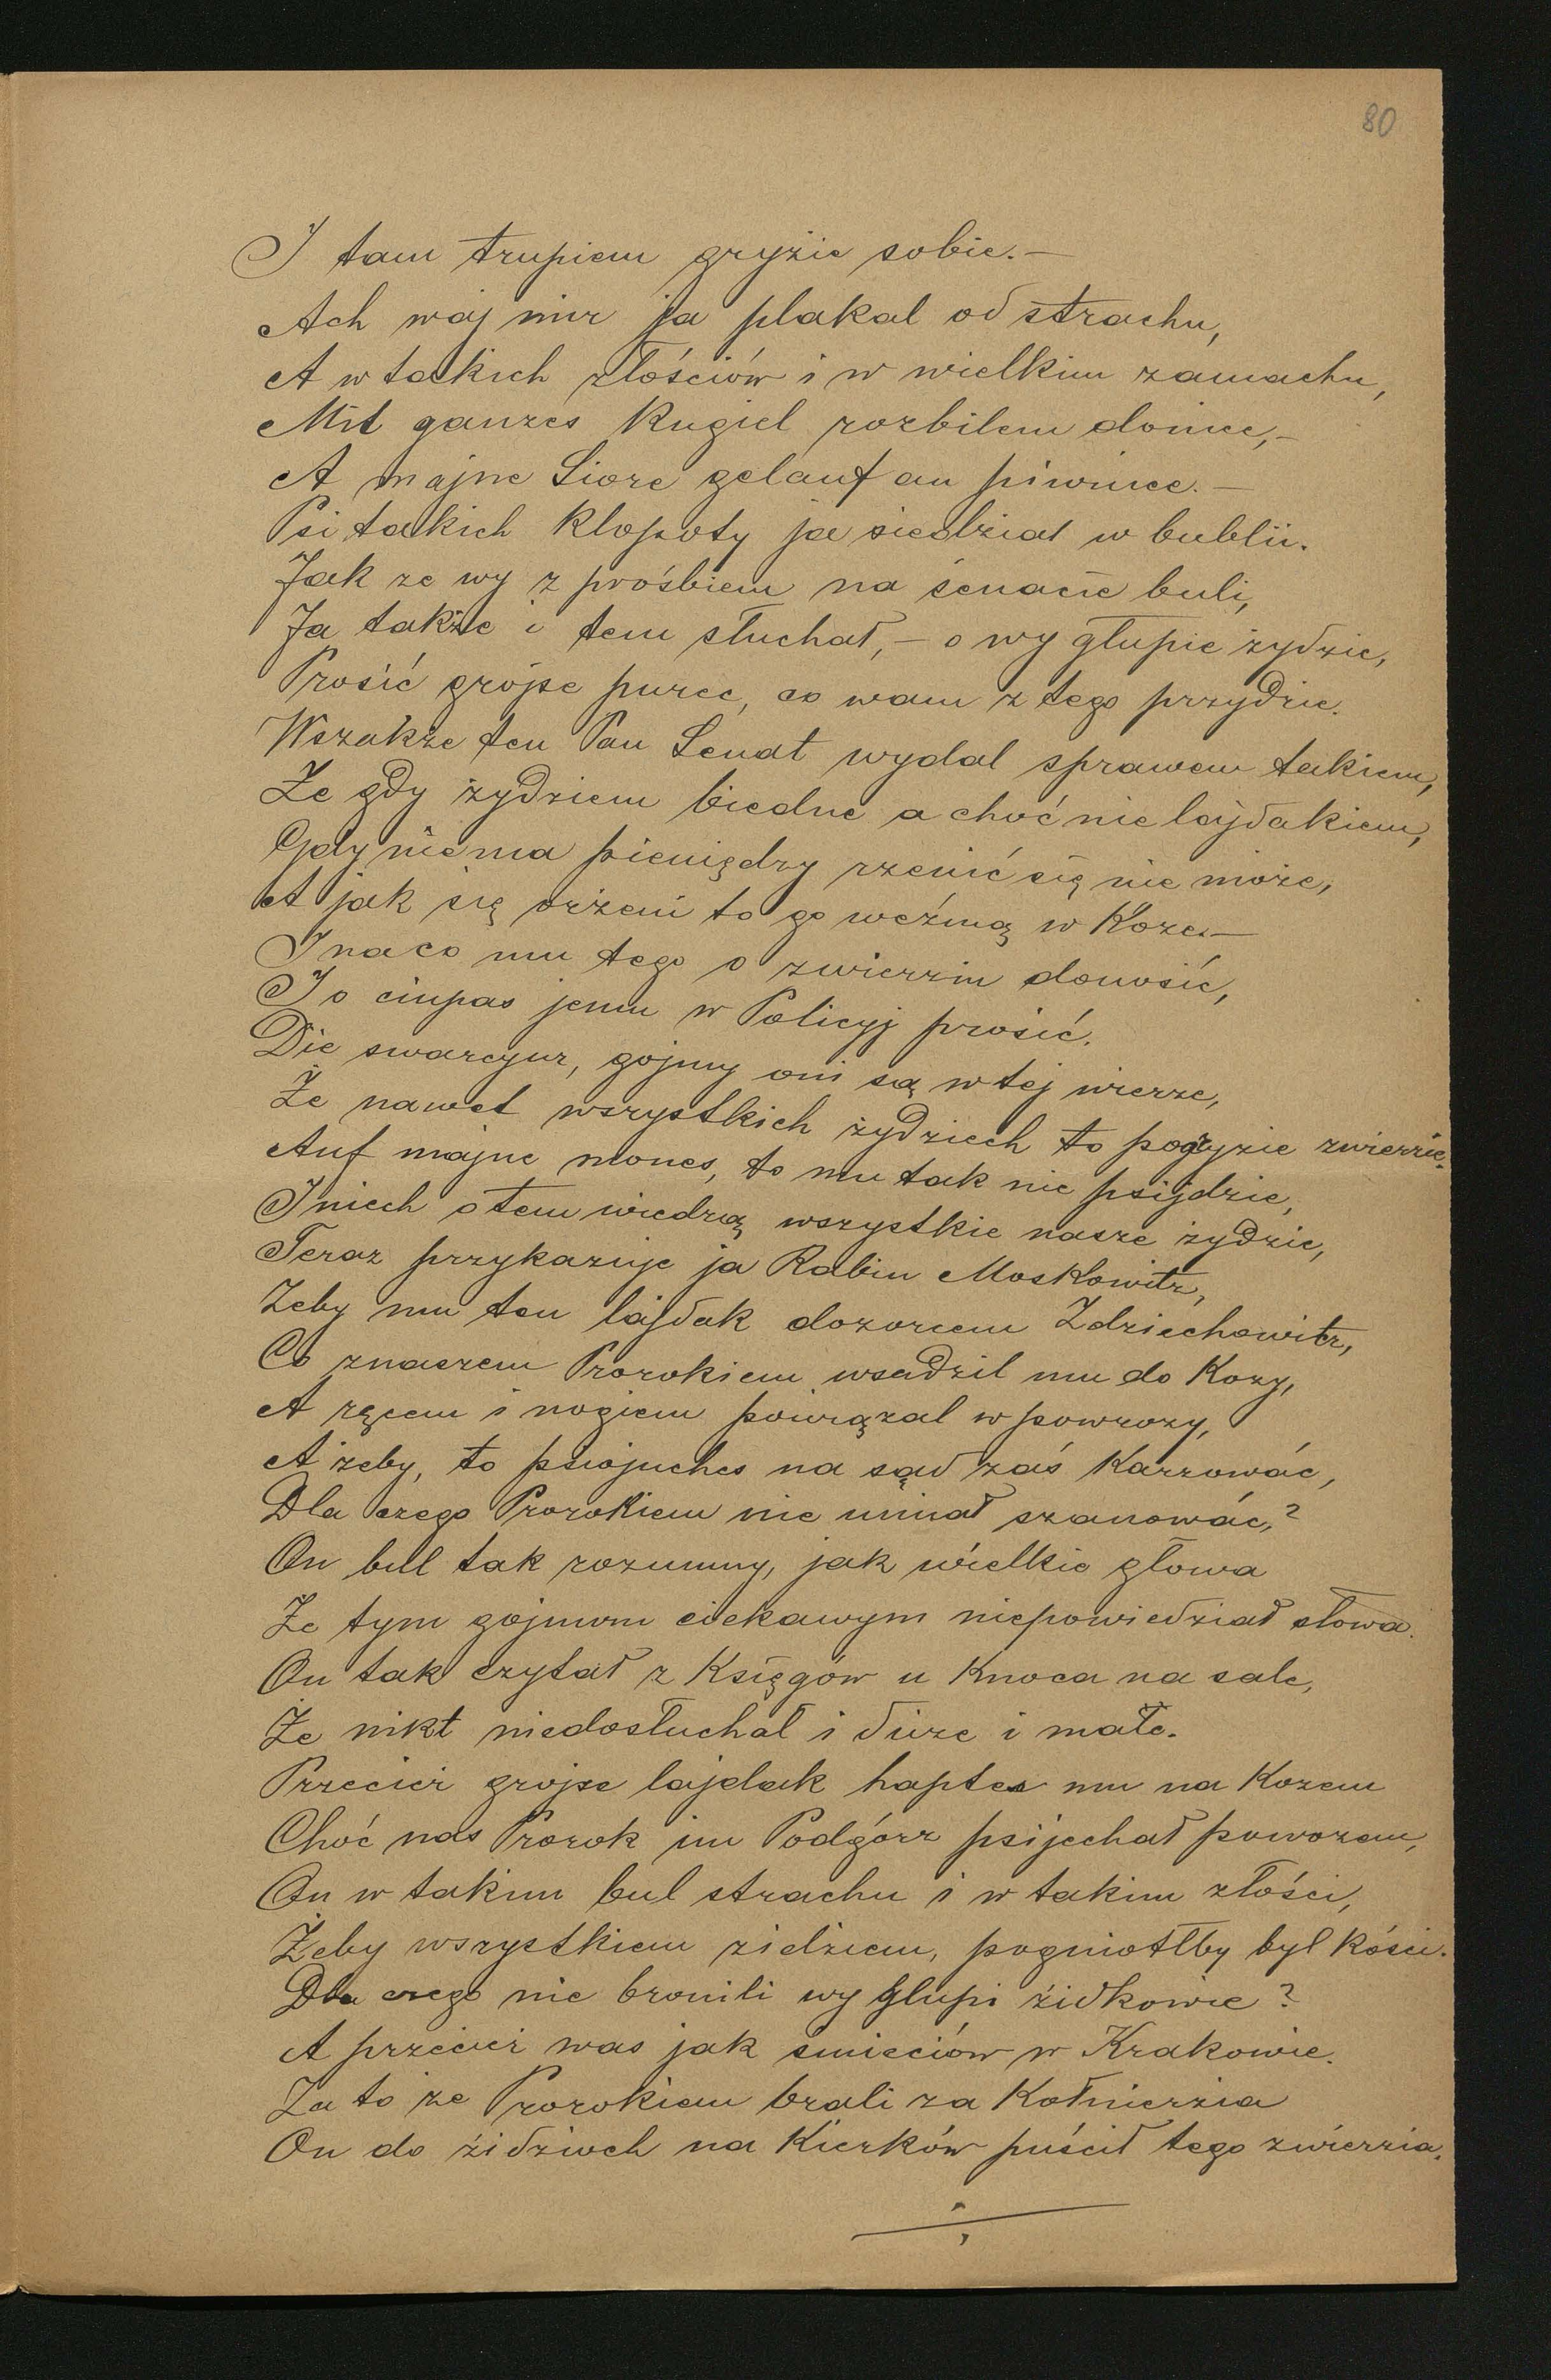 80
I tam trupiem gryzie sobie.—
Ach waj mir ja plakal od strachu,
A w takich złościów i w wielkim zamachu,
Mit ganzes Kugiel rozbilem donice,—
A majne Siore gelauf an piwnice.—
Psi takich klopoty ja siedział w bublii.
Jak ze wy z prośbiem na senacie buli,
Ja także i tem słuchał,— o wy głupie żydzie,
Prosić grojse purec, co wam z tego przydzie.
Wszakże ten Pan Senat wydal sprawem takiem,
Że gdy żydziem biedne a choć nie lajdakiem,
Gdy niema pieniędzy rzenić się nie może,
A jak się ożeni to go weźmą w Koze.—
I na co mu tego o zwierzin donosić,
I o ciupas jemu w Policyj prosić.
Die swarcjur, gojmy oni są w tej wierze,
Że nawet wszystkich żydziech to pogryzie zwierzie.
Auf majne mones, to mu tak nie psijdzie,
I niech o tem wiedzą wszystkie nasze żydzie,
Teraz przykazuje ja Rabin Moskowitz,
Zeby mu ten lajdak dozorcem Zdziechowitz,
Co znaszem Prorokiem wsadzil mu do Kozy,
A ręcem i nogiem powiązal w powrozy,
A żeby, to psiojuches na sąd zaś Karzować,
Dla czego Prorokiem nie umiał szanować,?
On bull tak rozumny, jak wielkie głowa
Ze tym gojmom ciekawym niepowiedział słowa.
On tak czytał z Księgów u Knoca na sale,
Że nikt niedosłuchał i duze i małe.
Przecier grojse lajdak haptes mu na Kozem
Choć nas Prorok im Podgórz psijechał powozem,
On w takim bul strachu i w takim złości,
Żeby wszystkiem zidziem, pogniotłby był Kości.
Dla czego nie bronili wy glupi židkowie?
A przecier was jak smieciów w Krakowie.
Za to ze Prorokiem brali za Kołnierzia
On do židziech na Kierków puścił tego zwierzia.